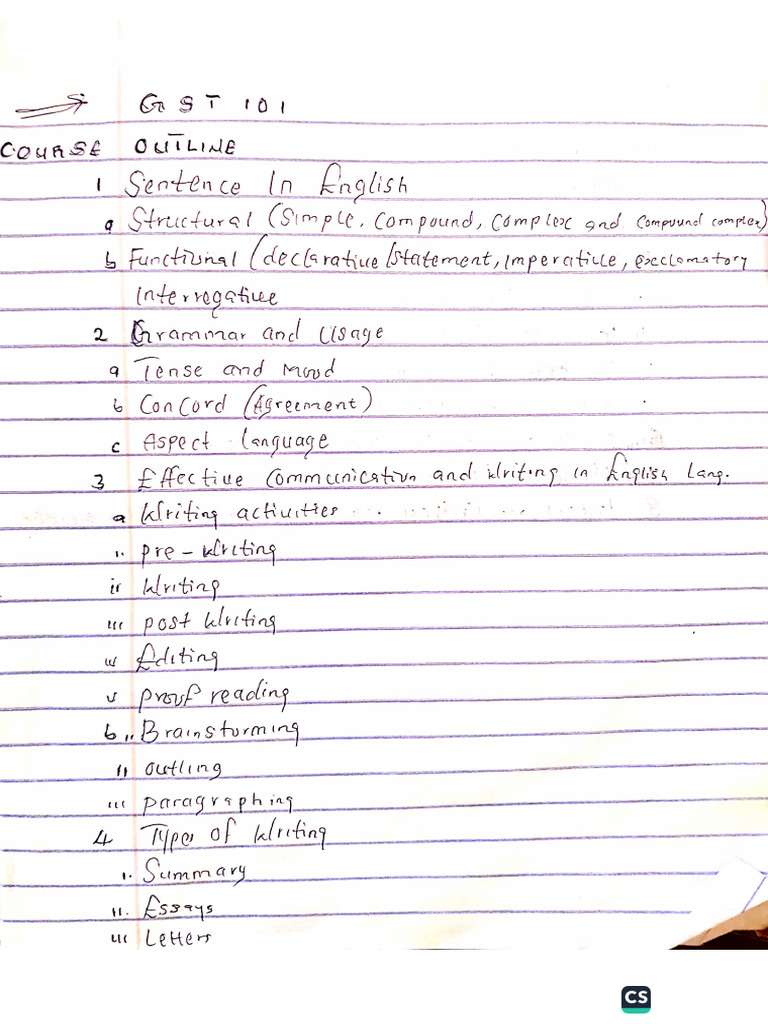 GST 101
COURSE OUTLINE
1 Sentence In English
a Structural (Simple, Compound, Complex and Compound complex)
b Functional (declarative/statement, imperative, exclamatory
interrogative
2 Grammar and Usage
a Tense and Mood
b Concord (Agreement)
c Aspect language
3 Effective Communication and Writing in English Lang.
a Writing activities
i. pre-writing
ii Writing
iii post Writing
iv Editing
v proof reading
b i. Brainstorming
ii outling
iii paragraphing
4 Types of Writing
i. Summary
ii. Essays
iii Letters
CS